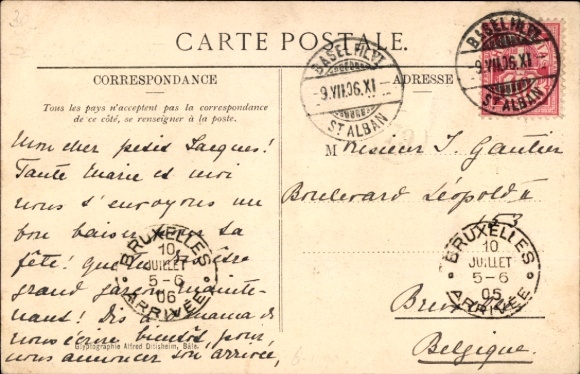 CARTE POSTALE.
CORRESPONDANCE
ADRESSE
Tous les pays n'acceptent pas la correspondance
de ce côté, se renseigner à la poste.
BASEL FIL. VI
-9.VII.06.XI
ST ALBAN
BASEL FIL. VI
-9.VII.06.XI
ST ALBAN
Mon cher petit Jacques!
Tante Marie et moi
nous t'envoyons un
bon baiser pour ta
fête!
grand garçon mainte-
nant! Dis à maman de
nous écrire bientôt, pour
nous annoncer son arrivée,
Monsieur J. Gautier
Boulevard Léopold II
153
Bruxelles
Belgique.
BRUXELLES
10
JUILLET
5-6
06
ARRIVÉE
BRUXELLES
10
JUILLET
5-6
06
ARRIVÉE
Glyptographie Alfred Ditisheim, Bâle.